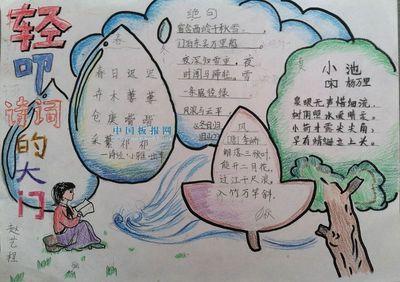 轻叩诗词的大门
春
春日迟迟
卉木萋萋
仓庚喈喈
采蘩祁祁
—诗经·小雅·出车
中国板报网
绝句
窗含西岭千秋雪,
门泊东吴万里船
深知雪重,夜
风
[唐]李峤
解落三秋叶
能开二月花,
过江千尺浪,
入竹万竿斜。
秋
夏
小池
宋 杨万里
泉眼无声惜细流,
树阴照水爱晴柔。
小荷才露尖尖角,
早有蜻蜓立上头。
赵艺程